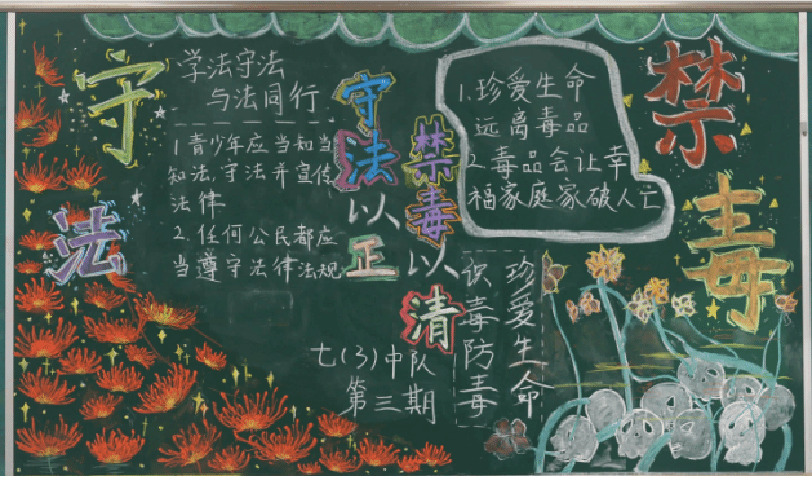 守法
学法守法
与法同行
1 青少年应当知当
知法,守法并宣传
法律
2. 任何公民都应
当遵守法律法规
守法以正
禁毒以清
七(3)中队
第三期
1. 珍爱生命
远离毒品
2. 毒品会让幸
福家庭家破人亡
珍爱生命
识毒防毒
禁毒